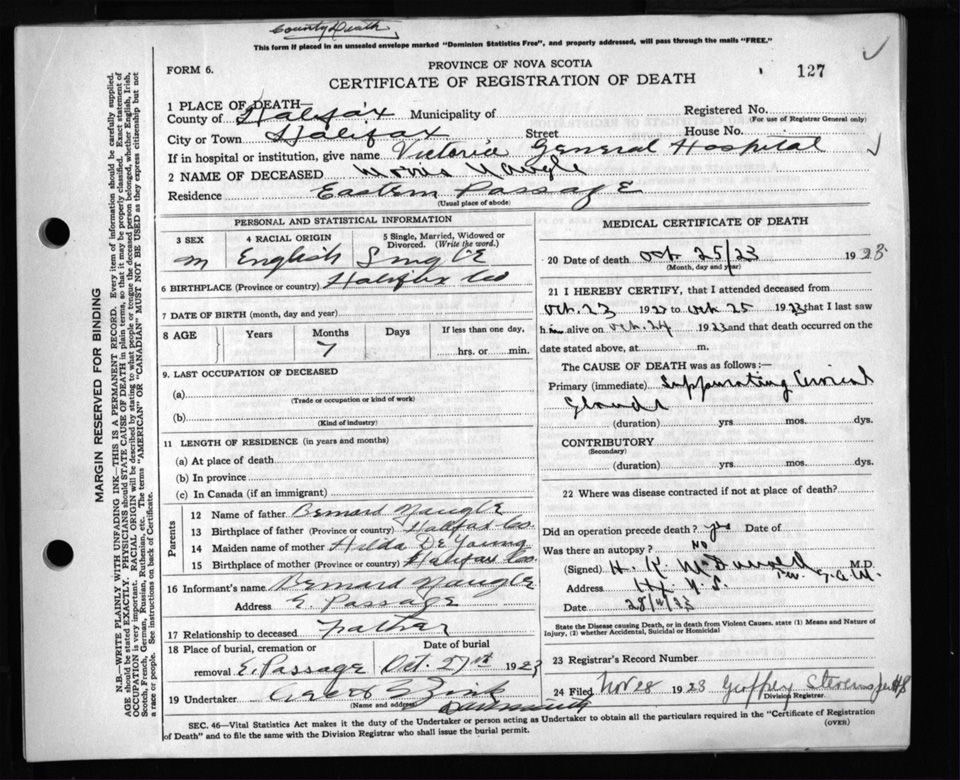 County Death
This form if placed in an unsealed envelope marked "Dominion Statistics Free", and properly addressed, will pass through the mails "FREE."
FORM 6.
PROVINCE OF NOVA SCOTIA
CERTIFICATE OF REGISTRATION OF DEATH
127
1 PLACE OF DEATH—
County of Halifax Municipality of
Registered No.
(For use of Registrar General only)
City or Town Halifax Street House No.
If in hospital or institution, give name Victoria General Hospital
2 NAME OF DECEASED Morris Naugle
Residence Eastern Passage
(Usual place of abode)
PERSONAL AND STATISTICAL INFORMATION
3 SEX 4 RACIAL ORIGIN 5 Single, Married, Widowed or Divorced. (Write the word.)
m English Single
6 BIRTHPLACE (Province or country) Halifax Co
7 DATE OF BIRTH (month, day and year)
8 AGE Years Months Days If less than one day,
7 hrs. or min.
9. LAST OCCUPATION OF DECEASED
(a)
(Trade or occupation or kind of work)
(b)
(Kind of industry)
11 LENGTH OF RESIDENCE (in years and months)
(a) At place of death
(b) In province
(c) In Canada (if an immigrant)
Parents
12 Name of father Bernard Naugle
13 Birthplace of father (Province or country) Halifax Co.
14 Maiden name of mother Hilda De Young
15 Birthplace of mother (Province or country) Halifax Co.
16 Informant's name Bernard Naugle
Address E. Passage
17 Relationship to deceased Father
18 Place of burial, cremation or removal E. Passage
Date of burial Oct. 27th 1923
19 Undertaker Zink
(Name and address) Dartmouth
MEDICAL CERTIFICATE OF DEATH
20 Date of death Oct. 25/23 1923
(Month, day and year)
21 I HEREBY CERTIFY, that I attended deceased from
Oct. 23 1923 to Oct. 25 1923 that I last saw
him alive on Oct. 24 1923 and that death occurred on the
date stated above, at m.
The CAUSE OF DEATH was as follows:—
Primary (immediate) Suppurating Cervical
Glands
(duration) yrs. mos. dys.
CONTRIBUTORY
(Secondary)
(duration) yrs. mos. dys.
22 Where was disease contracted if not at place of death?
Did an operation precede death? yes Date of
Was there an autopsy? No
(Signed) H. K. M.D.
Address
Date
State the Disease causing Death, or in death from Violent Causes, state (1) Means and Nature of Injury, (2) whether Accidental, Suicidal or Homicidal
23 Registrar's Record Number
24 Filed Nov 28 1923 Geoffrey Stevens
Division Registrar.
SEC. 46—Vital Statistics Act makes it the duty of the Undertaker or person acting as Undertaker to obtain all the particulars required in the "Certificate of Registration of Death" and to file the same with the Division Registrar who shall issue the burial permit.
(OVER)
MARGIN RESERVED FOR BINDING
N.B.—WRITE PLAINLY, WITH UNFADING INK—THIS IS A PERMANENT RECORD. Every item of information should be carefully supplied.
AGE should be stated EXACTLY. PHYSICIANS should STATE CAUSE OF DEATH in plain terms, so that it may be properly classified. Exact statement of
OCCUPATION is very important. RACIAL ORIGIN will be described by stating to what people or tongue the deceased person belonged, whether English, Irish,
Scotch, French, German, Russian, Ruthenian, etc. The terms "AMERICAN" OR "CANADIAN" MUST NOT BE USED as they express citizenship but not
a race or people. See instructions on back of Certificate.